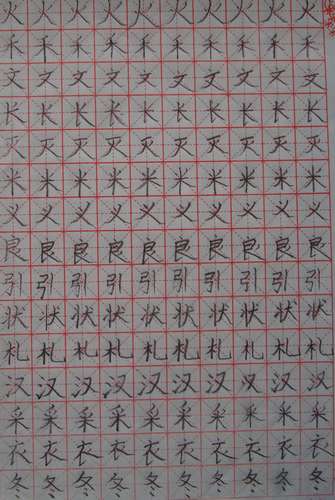 火火火火火火火火火火
禾禾禾禾禾禾禾禾禾禾
文文文文文文文文文文
长长长长长长长长长长
灭灭灭灭灭灭灭灭灭灭
米米米米米米米米米米
义义义义义义义义义义
良良良良良良良良良良
引引引引引引引引引引
状状状状状状状状状状
札札札札札札札札札札
汉汉汉汉汉汉汉汉汉汉
采采采采采采采采采采
衣衣衣衣衣衣衣衣衣衣
冬冬冬冬冬冬冬冬冬冬